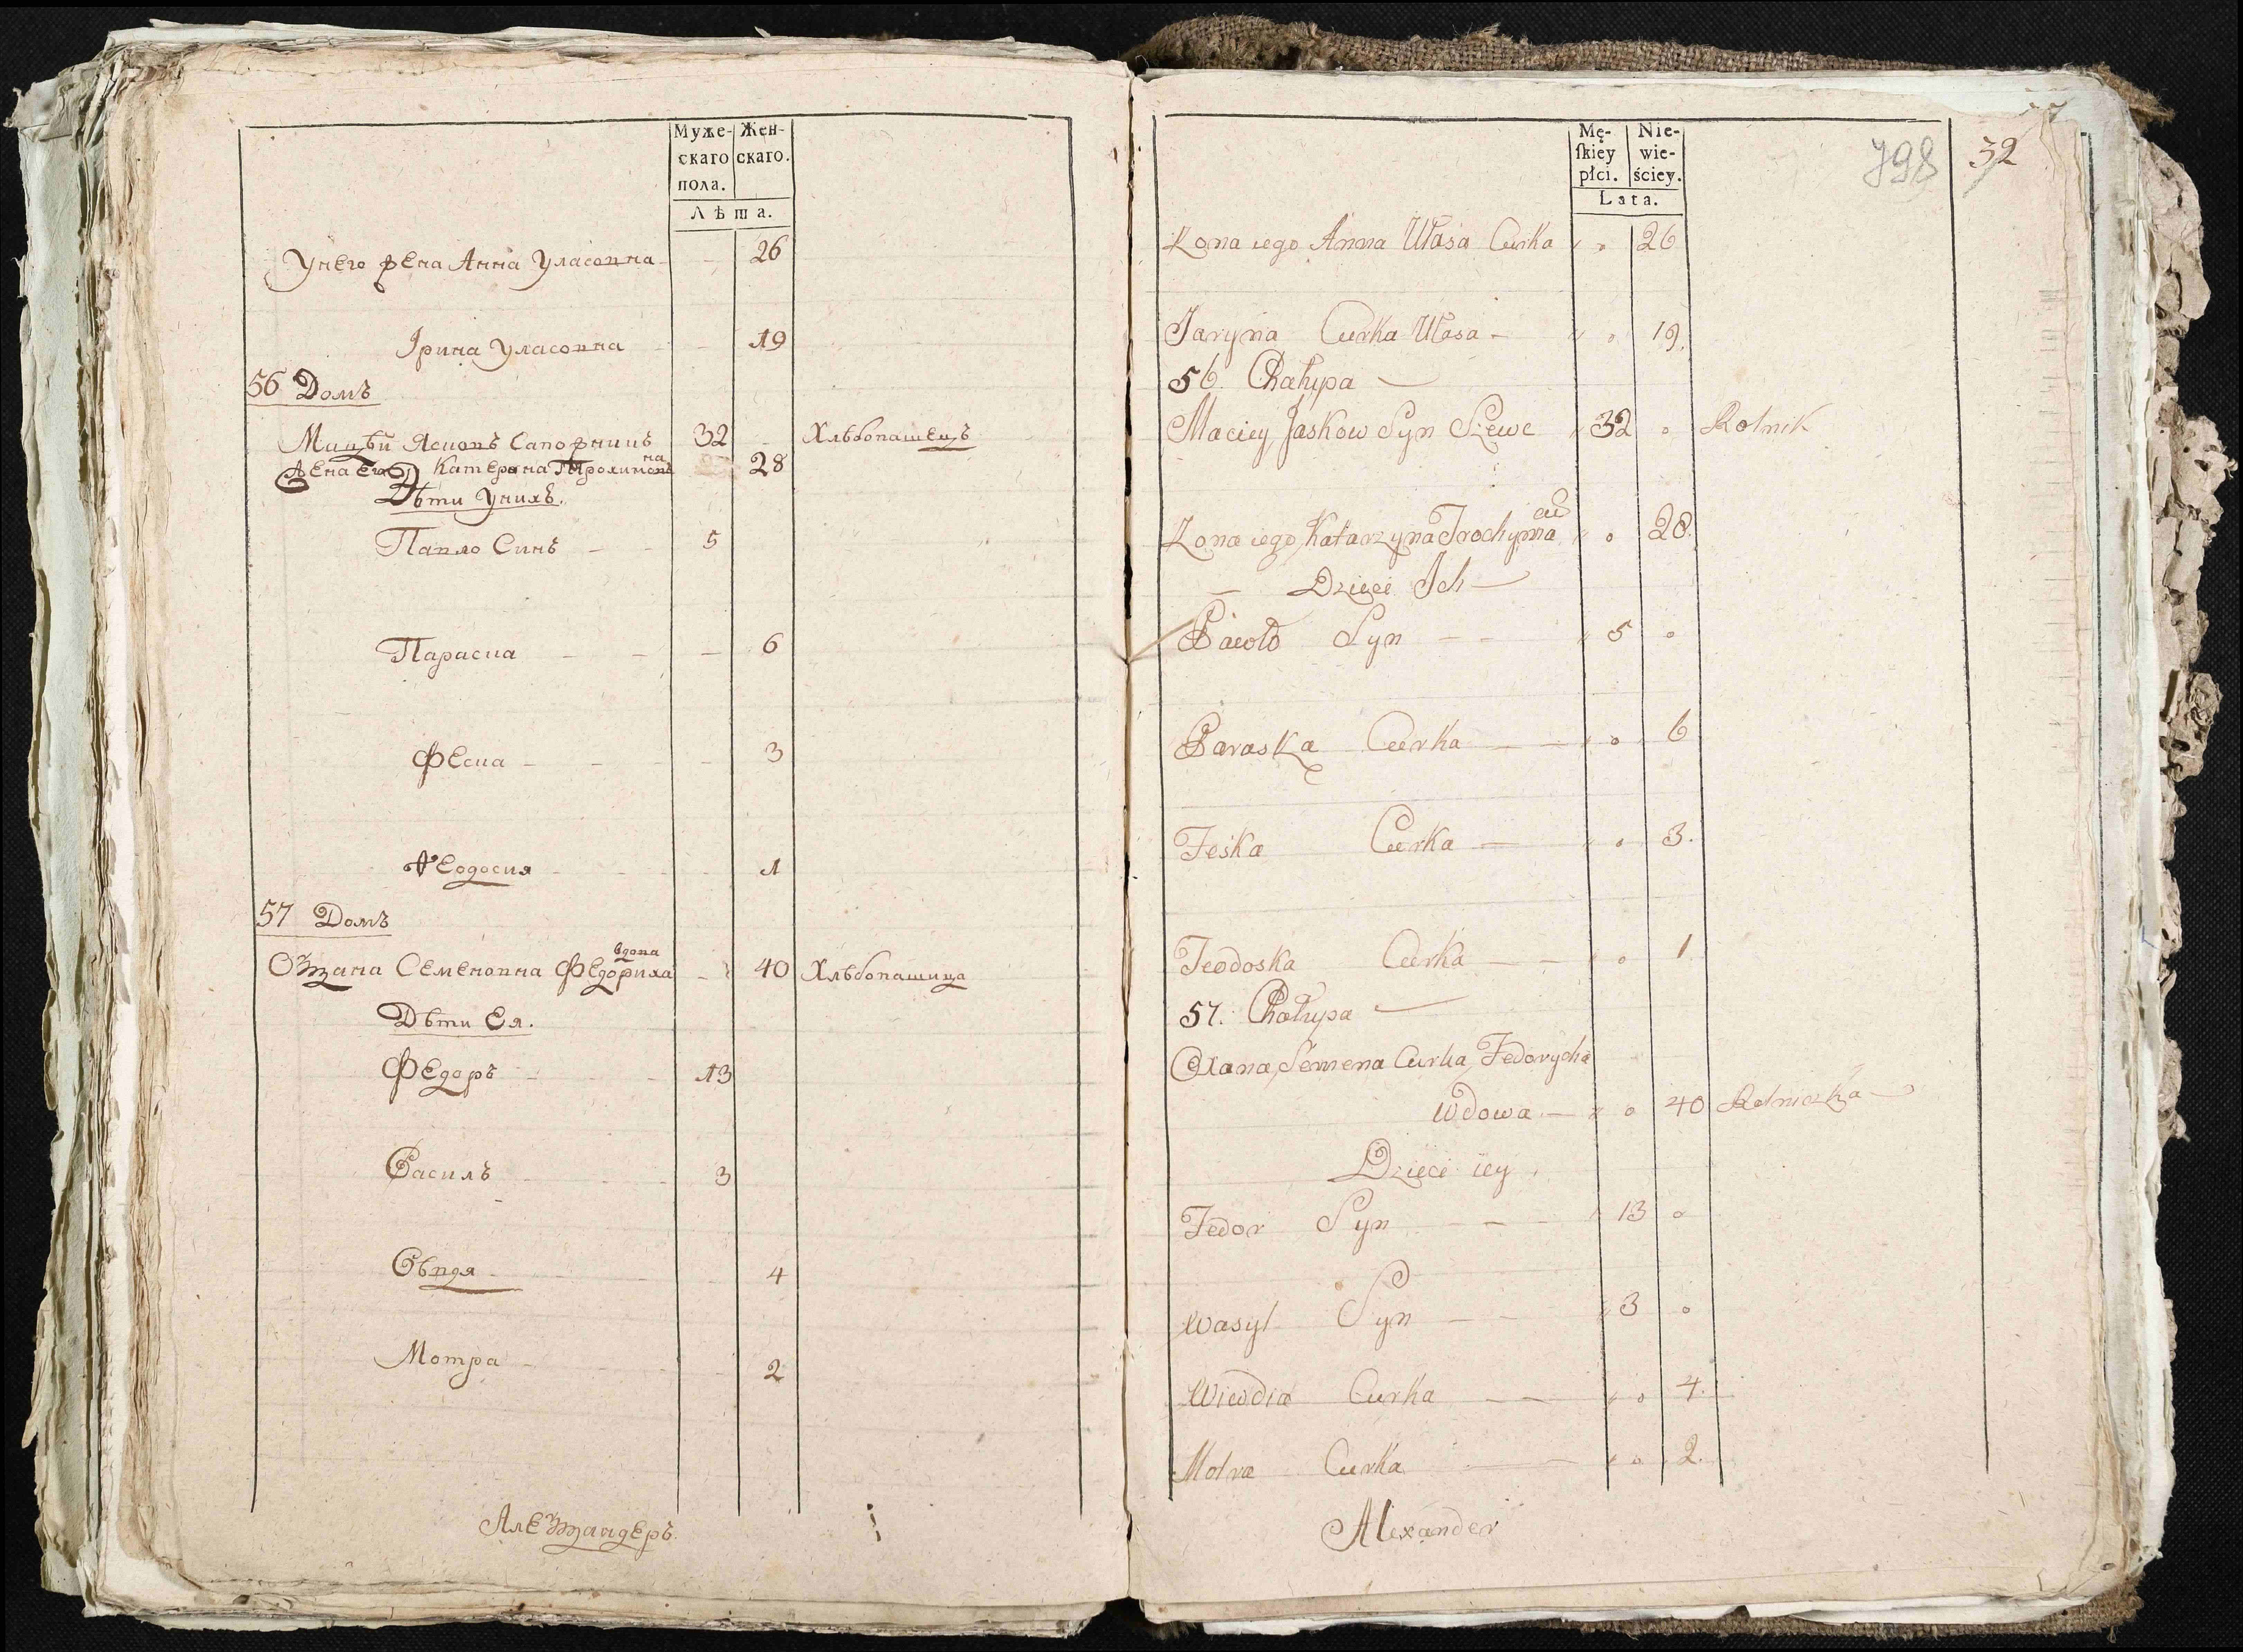 Муже- Жен-
скаго скаго.
пола.
Лѣта.
Унего жена Анна Уласовна 26
Ірина Уласовна 19
56 Домъ
Мацѣй Ясковъ Сапожникъ 32 Хлѣбопашецъ
Жена Его Катерина Трохимовна 28
Дѣти Унихъ.
Павло Синъ 5
Параска 6
Феска 3
Ѳеодосия 1
57 Домъ
вдова
Оѯана Семеновна Федориха 40 Хлѣбопашица
Дѣти Ея.
Федоръ 13
Василъ 3
Євдя 4
Мотра 2
Алеѯандеръ.
Mę- Nie-
ſkiey wie-
płci. ściey.
Lata.
798 32
Zona iego Anna Ułasa Curka " 0 26
Jaryna Curka Ułasa " 0 19.
56. Chałupa
Maciey Jaskow Syn Szewc " 32 0 Rolnik
Zona iego Katarzyna Trochyma cu " 0 28.
Dzieci Ich
Pawło Syn " 5 0
Paraska Curka " 0 6
Feśka Curka " 0 3.
Teodoska Curka " 0 1
57. Chałupa
Oxana Semena Curka Fedorycha
Wdowa " 0 40 Rolniczka
Dzieci iey
Fedor Syn " 13 0
Wasyl Syn " 3 0
Wiewdia Curka " 0 4.
Motra Curka " 0 2.
Alexander